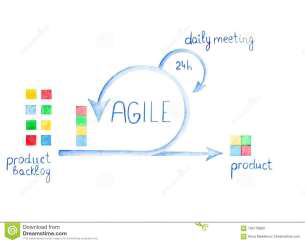 daily meeting
24h
AGILE
product
backlog
product
Download from
Dreamstime.com